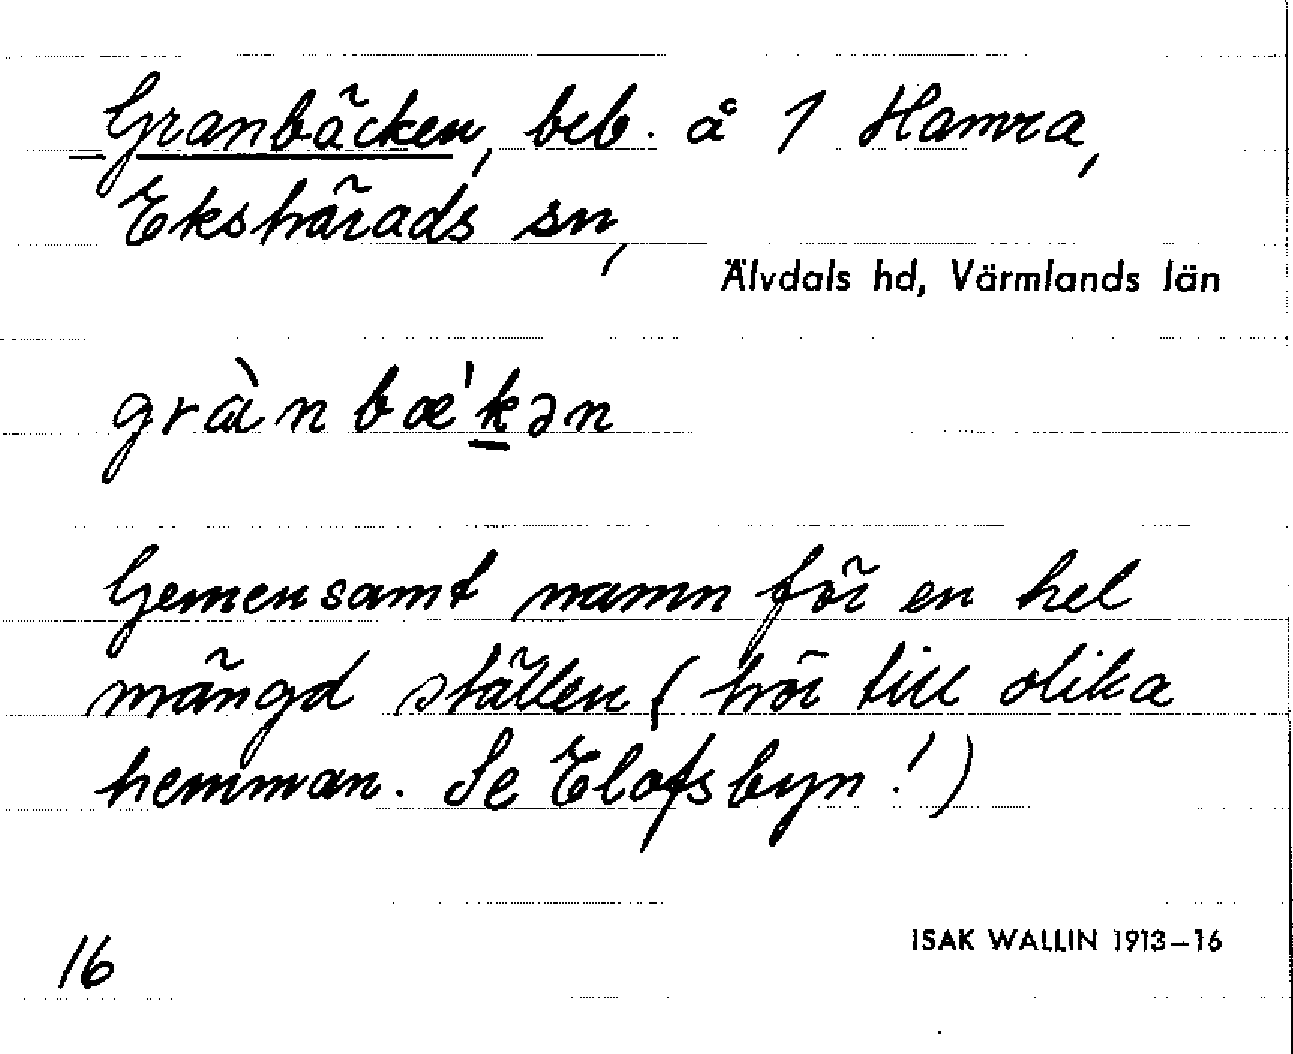 Granbäcken, beb. å 1 Hamra,
Ekshärads sn,
Älvdals hd, Värmlands län
gràn bæ'kən
Gemensamt namn för en hel
mängd ställen (hör till olika
hemman. Se Elofsbyn!)
16
ISAK WALLIN 1913–16